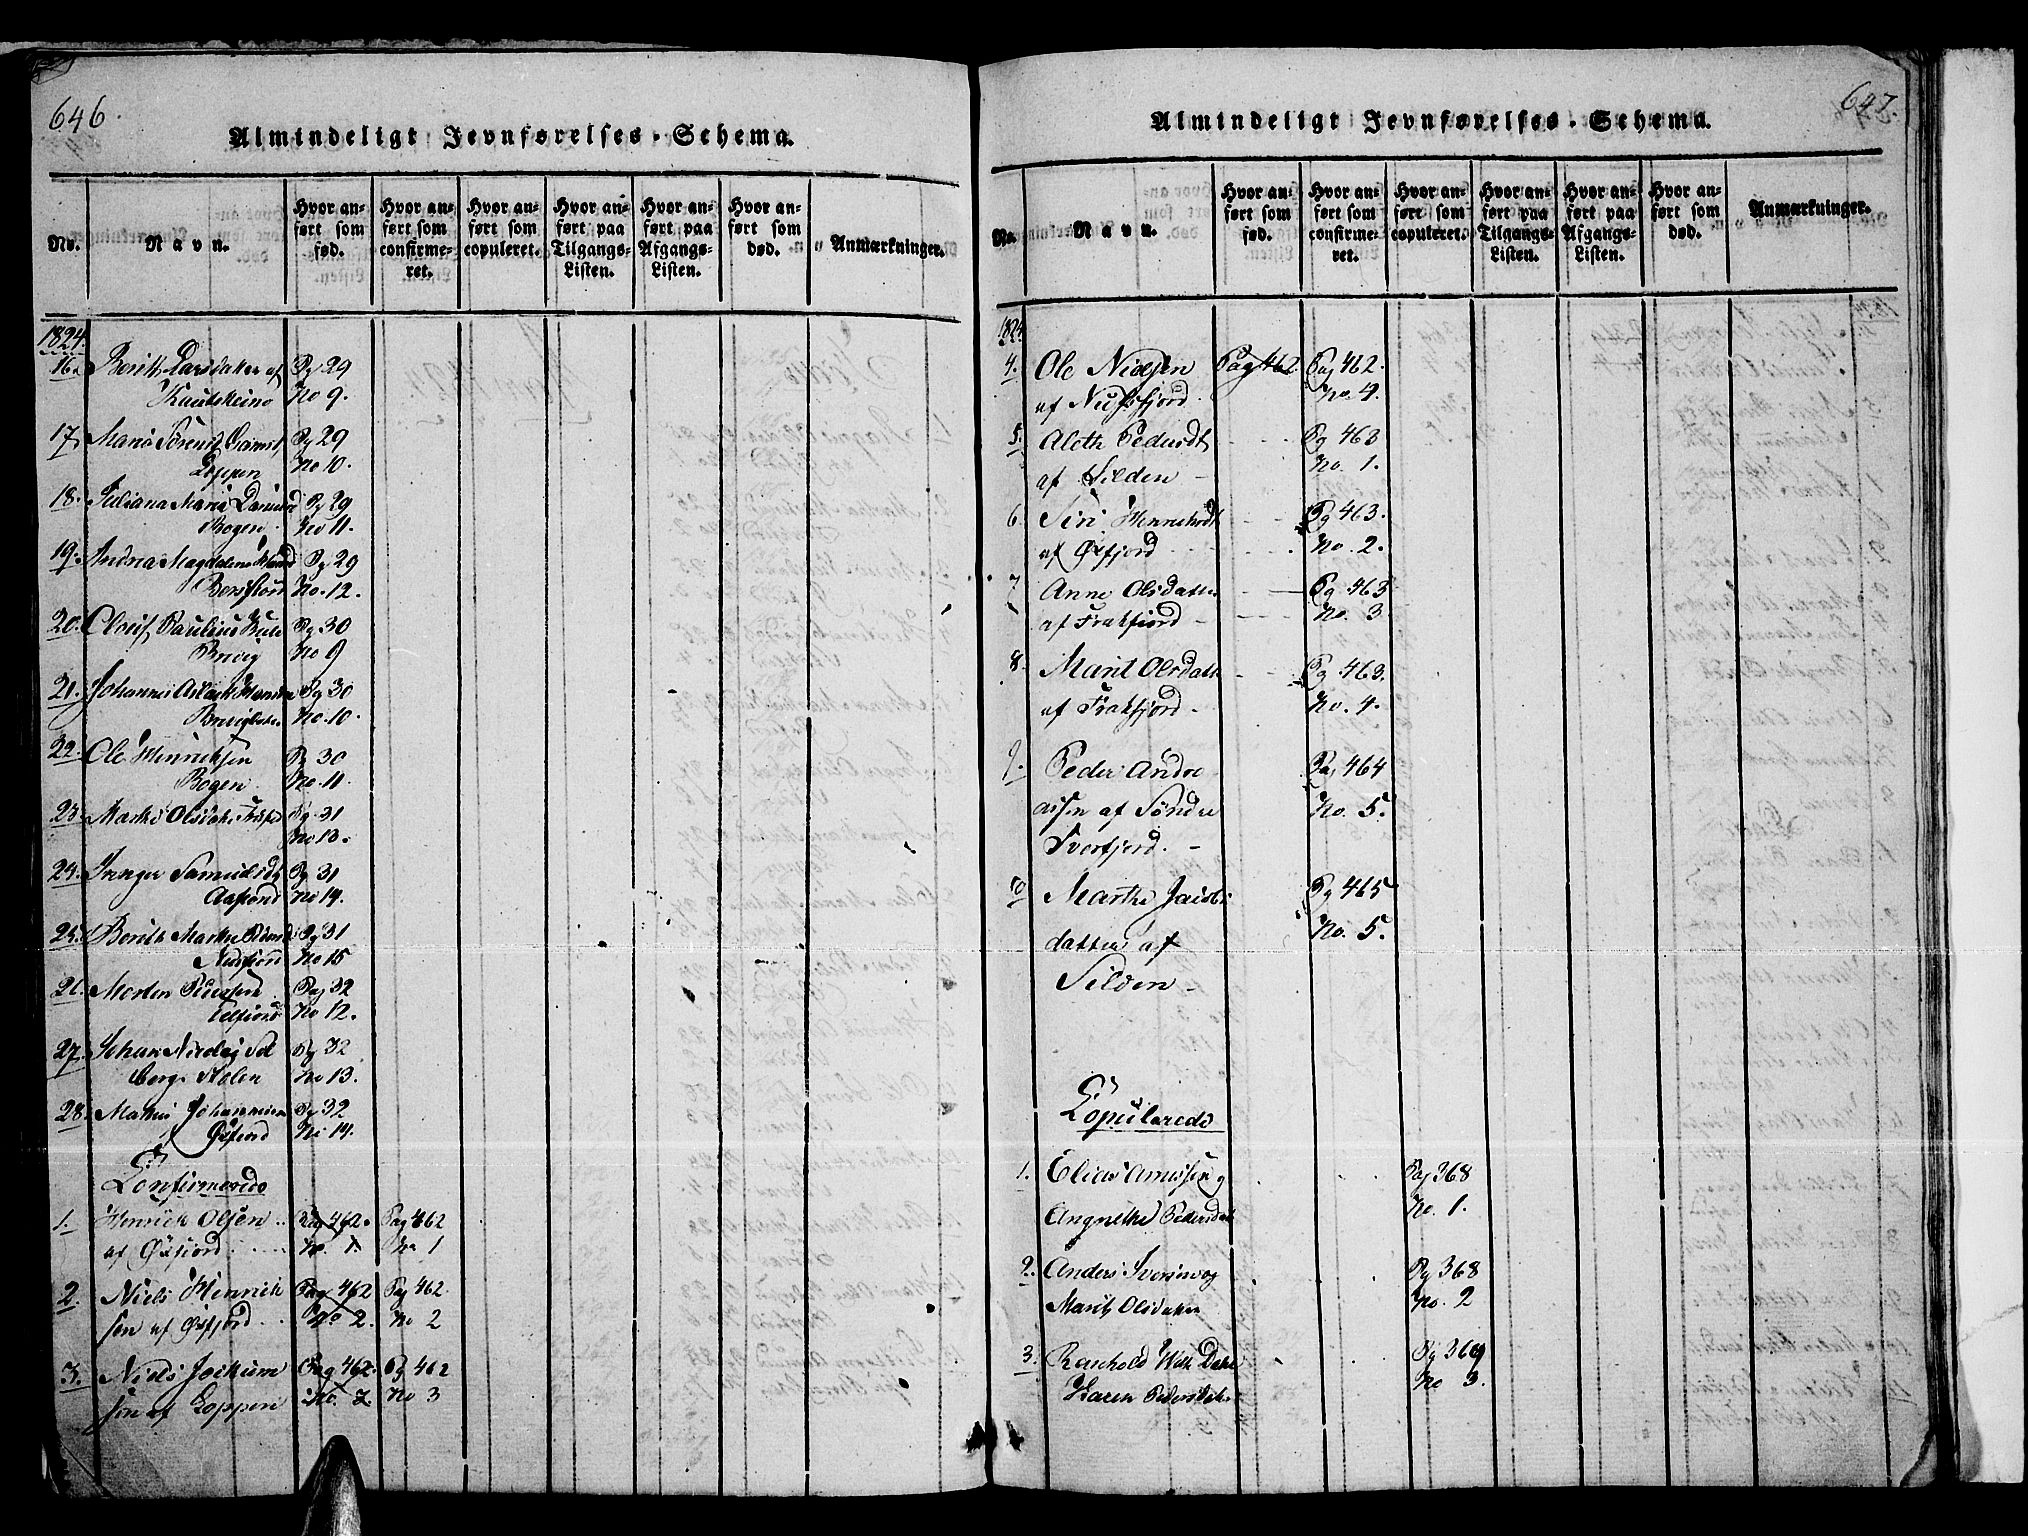 646.
Almindeligt Jevnførelses-Schema.
No.
Navn.
Hvor anført som fød.
Hvor anført som confirmeret.
Hvor anført som copuleret.
Hvor anført paa Tilgangs-Listen.
Hvor anført paa Afgangs-Listen.
Hvor anført som død.
Anmærkninger.
1824.
16. Berith Larsdatter af Pg 29
Kautokeino No 9.
17. Pg 29
Loppen No 10.
18. Juliana Maria Pg 29
Bogen No 11.
19. Magdalena Pg 29
No. 12.
20. Paulius Pg 30
No 9
21. Johannes Aslack Pg 30
No. 10.
22. Ole Henriksen Pg 30
Bogen No. 11.
23. Marthe Olsdatter Pg. 31
No 13.
24. Inger Samuelsdt Pg 31
No 14.
25. Berith Marthe Pg 31
Nusfiord No 15
26. Morten Pedersen Pag 32
No 12.
27. Johan Nicolaj Sol Pg 32
berg No 13.
28. Mathis Johannesen Pg 32
Øxfiord No 14.
Confirmerede
1. Henrich Olsen Pag 462. Pag 462
af Øxfiord No. 1. No 1
2. Niels Henrich Pag 462 Pag 462
sen af Øxfjord No 2. No 2
3. Niels Jochum Pag 462. Pg 462
sen af Loppen No. No 3
647.
Almindeligt Jevnførelses-Schema.
No.
Navn.
Hvor anført som fød.
Hvor anført som confirmeret.
Hvor anført som copuleret.
Hvor anført paa Tilgangs-Listen.
Hvor anført paa Afgangs-Listen.
Hvor anført som død.
Anmærkninger.
4. Ole Nielsen Pag 462 Pag 462.
af Nusfjord No. 4.
5. Aleth Pedersdt Pg 463
af Silden No. 1.
6. Siri Henrichsdt Pg 463.
af Øxfjord No. 2.
7 Anne Olsdatter Pg 463
af Frakfiord No. 3.
8. Marit Olsdatt Pg 463.
af Frakfjord No. 4.
9. Peder Andre Pag 464
assen af Søndre No. 5.
Tverfjord.
10 Marthe Jacobs Pg 465
datter af No. 5.
Silden
Copulerede
1. Elias Arnesen og Pag 368
Angnethe Pedersdat No. 1.
2. Anders Iversen og Pg 368
Marit Olsdatter No. 2
3. Reinhold With Pg 369
Karen Pedersdatter No 3.